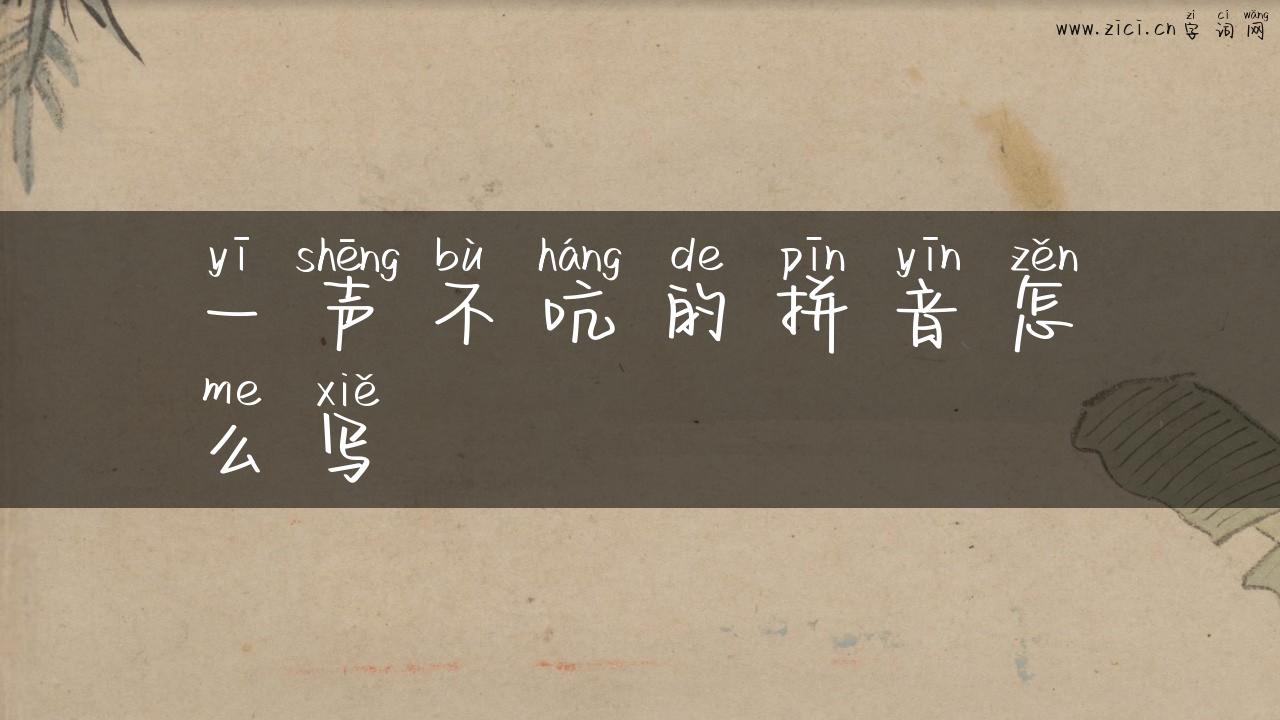 zì cí wǎng
www.zici.cn 字词网
yī shēng bù háng de pīn yīn zěn
一声不吭的拼音怎
me xiě
么写